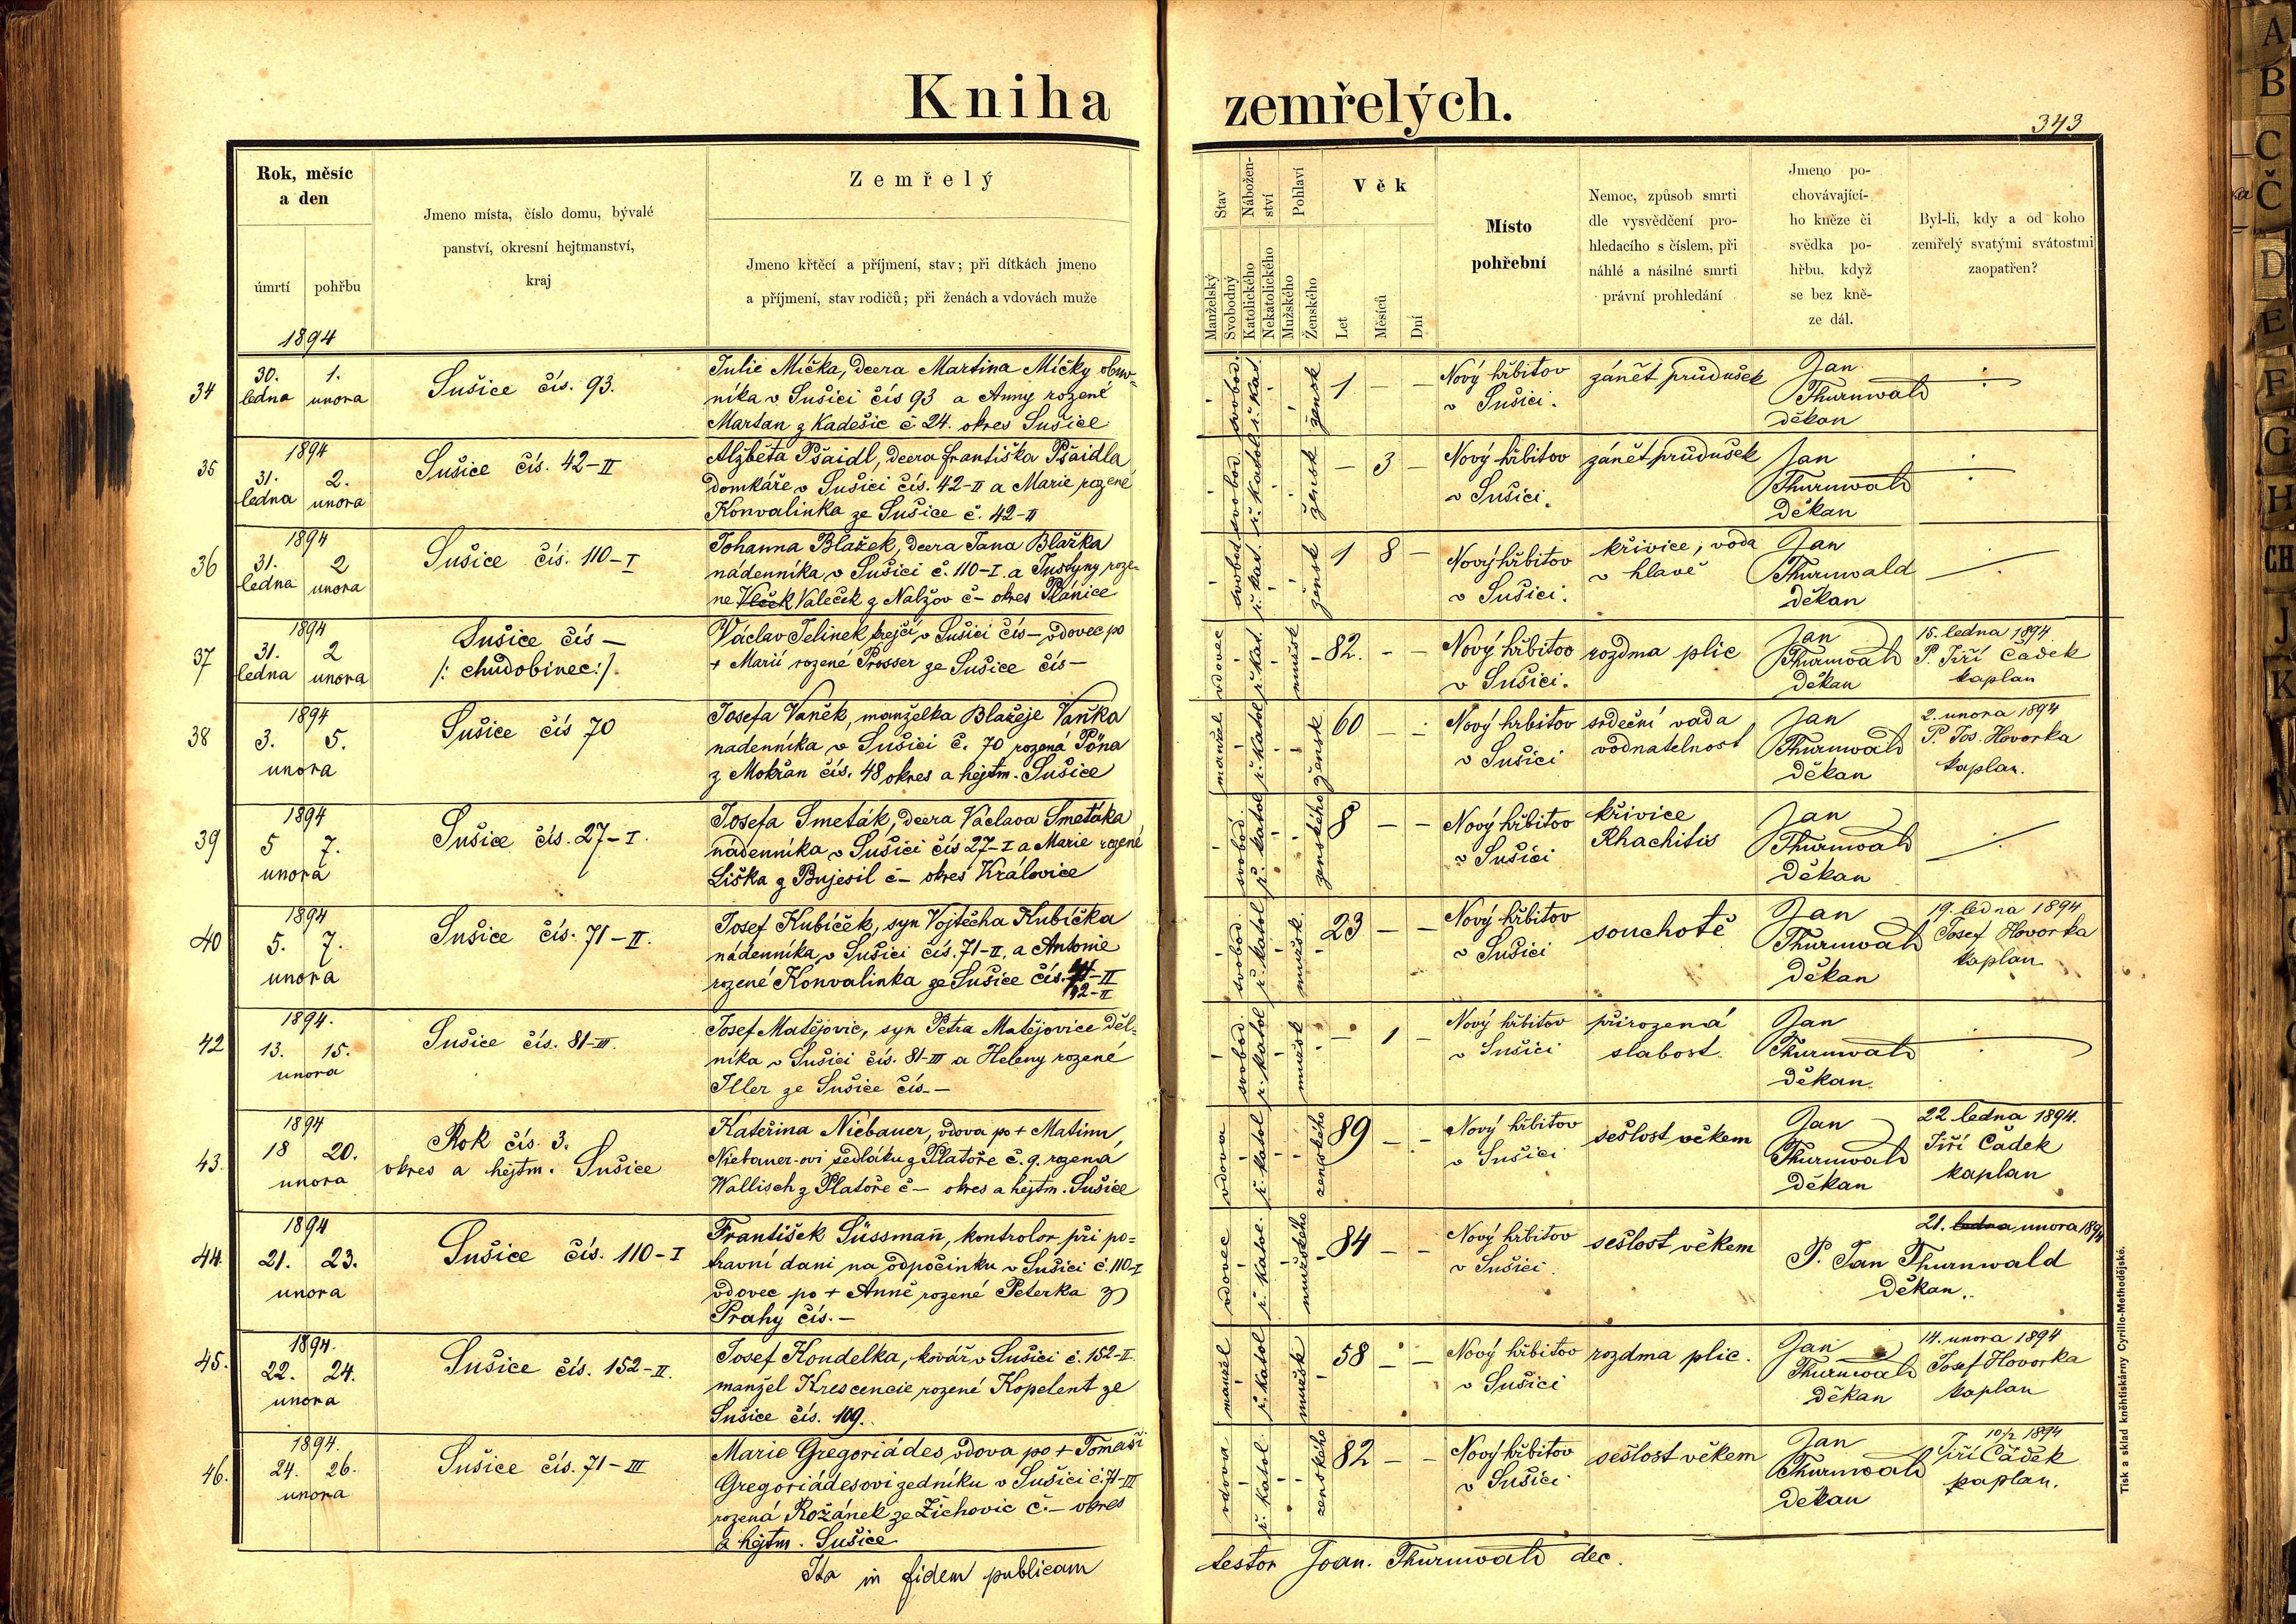 Kniha zemřelých.
343
Rok, měsíc
a den
úmrtí
pohřbu
Jmeno místa, číslo domu, bývalé
panství, okresní hejtmanství,
kraj
Zemřelý
Jmeno křtěcí a příjmení, stav; při dítkách jmeno
a příjmení, stav rodičů; při ženách a vdovách muže
Stav
Manželský
Svobodný
Nábožen-
ství
Katolického
Nekatolického
Pohlaví
Mužského
Ženského
Věk
Let
Měsíců
Dní
Místo
pohřební
Nemoc, způsob smrti
dle vysvědčení pro-
hledacího s číslem, při
náhlé a násilné smrti
právní prohledání
Jmeno po-
chovávající-
ho kněze či
svědka po-
hřbu, když
se bez kně-
ze dál.
Byl-li, kdy a od koho
zemřelý svatými svátostmi
zaopatřen?
1894
34
30. 1.
ledna unora
Sušice čís. 93.
Julie Míčka, dcera Martina Míčky obuv-
níka v Sušici čís 93 a Anny rozené
Martan z Kadešic č 24. okres Sušice
svobod. ř. kat. žensk 1 – –
Nový hřbitov
v Sušici.
zánět průdušek
Jan
Thurnwald
děkan
35
1894
31. 2.
ledna unora
Sušice čís. 42–II
Alžběta Pšaidl, dcera Františka Pšaidla
domkáře v Sušici čís. 42–II a Marie rozené
Konvalinka ze Sušice č. 42–II
svobod ř. katol žensk – 3 –
Nový hřbitov
v Sušici.
zánět průdušek
Jan
Thurnwald
Děkan
36
1894
31. 2
ledna unora
Sušice čís. 110–I
Johanna Blažek, dcera Jana Blažka
nádenníka v Sušici č. 110–I. a Justyny roze-
ne Vlček Valeček z Nalžov č– okres Plánice
svobod ř. kat. žensk 1 8 –
Nový hřbitov
v Sušici.
křivice, voda
v hlavě
Jan
Thurnwald
děkan
37
1894
31. 2
ledna unora
Sušice čís –
/: chudobinec :/
Václav Jelinek krejčí v Sušici čís – vdovec po
+ Marii rozené Prosser ze Sušice čís –
vdovec ř. kat. mužsk 82. – –
Nový hřbitov
v Sušici.
rozdma plic
Jan
Thurnwald
děkan
15. ledna 1894
P. Jiří Čadek
kaplan
38
1894
3. 5.
unora
Sušice čís 70
Josefa Vaněk, manželka Blažeje Vaňka
nadenníka v Sušici č. 70 rozená Pöna
z Mokřan čís. 48 okres a hejtm. Sušice
manžel ř. katol žensk. 60 – –
Nový hřbitov
v Sušici
srdeční vada
vodnatelnost
Jan
Thurnwald
děkan
2. unora 1894
P. Jos. Hovorka
kaplan.
39
1894
5 7.
unora
Sušice čís. 27–I.
Josefa Smeták, dcera Václava Smetáka
nádenníka v Sušici čís 27–I a Marie rozené
Liška z Bujesil č– okres Královice
svobod. ř. katol ženského 8 – –
Nový hřbitov
v Sušici
křivice
Rhachitis
Jan
Thurnwald
Děkan
40
1894
5. 7.
unora
Sušice čís. 71–II.
Josef Kubíček, syn Vojtěcha Kubíčka
nádenníka v Sušici čís. 71–II. a Antonie
rozené Konvalinka ze Sušice čís. 71–II
42–II
svobod. ř. katol mužsk. 23 – –
Nový hřbitov
v Sušici
souchotě
Jan
Thurnwald
Děkan
19. ledna 1894
Josef Hovorka
kaplan
42
1894.
13. 15.
unora
Sušice čís. 81–III.
Josef Matějovic, syn Petra Matějovice děl-
níka v Sušici čís. 81–III a Heleny rozené
Iller ze Sušice čís. –
svobod. ř. katol mužsk – 1 –
Nový hřbitov
v Sušici
přirozená
slabost.
Jan
Thurnwald
děkan.
43.
1894
18 20.
unora
Rok čís. 3.
okres a hejtm. Sušice
Kateřina Niebauer, vdova po + Matinu
Niebauer-ovi sedláku z Platoře č. 9. rozená
Wallisch z Platoře č – okres a hejtm. Sušice
vdova ř. katol ženského 89 – –
Nový hřbitov
v Sušici
sešlost věkem
Jan
Thurnwald
Děkan
22 ledna 1894.
Jiří Čadek
kaplan
44.
1894
21. 23.
unora
Sušice čís. 110–I
František Süssmañ, kontrolor při po-
travní dani na odpočinku v Sušici č. 110–I
vdovec po + Anně rozené Peterka z
Prahy čís. –
vdovec ř. katol. mužského 84 – –
Nový hřbitov
v Sušici.
sešlost věkem
21. ledna unora 1894
P. Jan Thurnwald
Děkan.
45.
1894.
22. 24.
unora
Sušice čís. 152–II.
Josef Koudelka, kovář v Sušici č. 152–II.
manžel Krescencie rozené Kopelent ze
Sušice čís. 109.
manžel ř. katol mužsk 58 – –
Nový hřbitov
v Sušici
rozdma plic.
Jan
Thurnwald
Děkan
14. unora 1894
Josef Hovorka
kaplan
46.
1894.
24. 26.
unora
Sušice čís. 71–III
Marie Gregoriádes, vdova po + Tomáši
Gregoriádesovi zedníku v Sušici č. 71–III
rozená Rožánek ze Žichovic č. – okres
a hejtm. Sušice
vdova ř. katol. ženského 82 – –
Nový hřbitov
v Sušici
sešlost věkem
Jan
Thurnwald
děkan
10/2 1894
Jiří Čadek
kaplan.
Ita in fidem publicam testor Joan. Thurnwald dec.
Tisk a sklad kněhtiskárny Cyrillo-Methodějské.
A
B
C
Č
D
E
F
G
H
CH
J
K